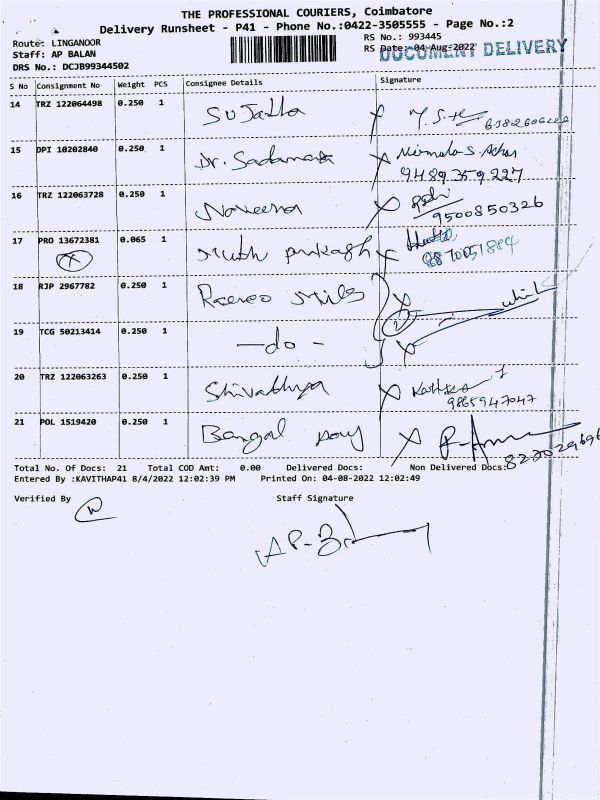 THE PROFESSIONAL COURIERS, Coimbatore
Delivery Runsheet - P41 - Phone No.:0422-3505555 - Page No.:2
Route: LINGANOOR
RS No.: 993445
Staff: AP BALAN
RS Date: 04-Aug-2022
DOCUMENT DELIVERY
DRS No.: DCJB99344502
S No Consignment No Weight PCS Consignee Details Signature
14 TRZ 122064498 0.250 1 Sujatha
15 DPI 10202840 0.250 1 Dr. Nirmala S.
9489359227
16 TRZ 122063728 0.250 1 Naveena
9500850326
17 PRO 13672381 0.065 1 Muth prakash
18 RJP 2967782 0.250 1 Mills
19 TCG 50213414 0.250 1 -do-
20 TRZ 122063263 0.250 1
9865947047
21 POL 1519420 0.250 1 Bengal
Total No. Of Docs: 21 Total COD Amt: 0.00 Delivered Docs: Non Delivered Docs:
Entered By :KAVITHAP41 8/4/2022 12:02:39 PM Printed On: 04-08-2022 12:02:49
Verified By Staff Signature